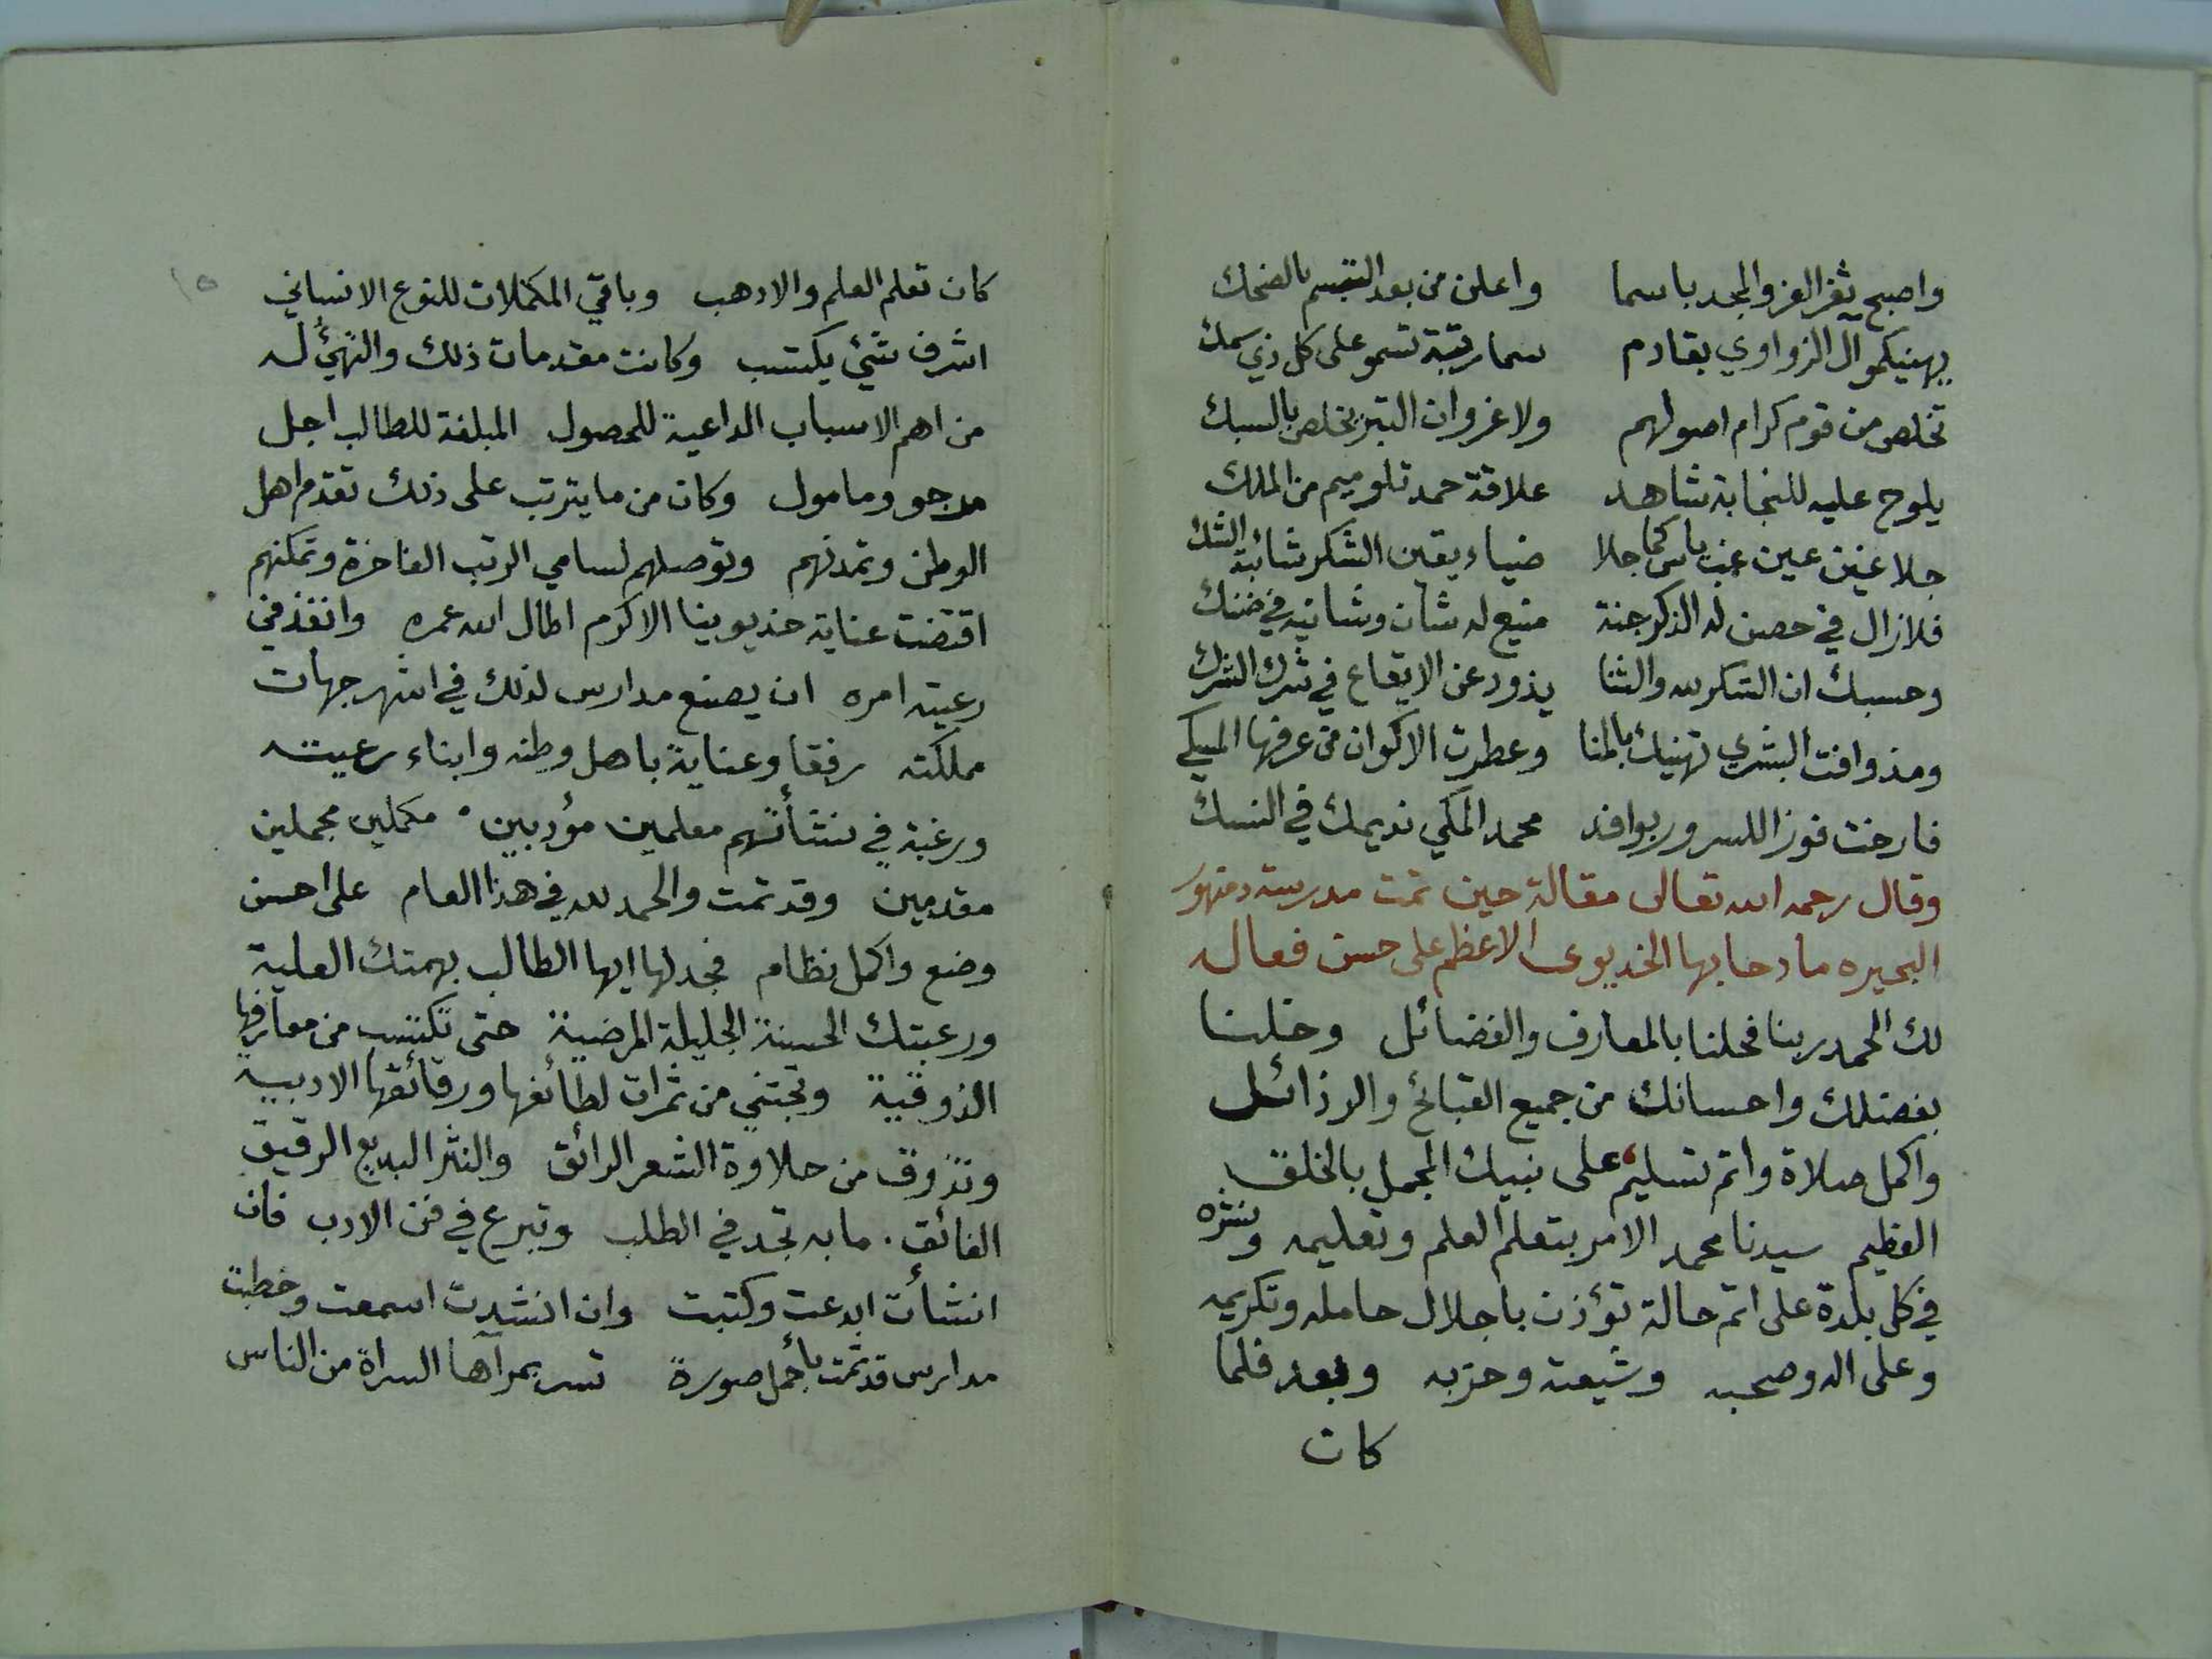 واصبح ثغر العز والمجد باسما واعلن من بعد التبسم بالضحك
يهنيكمو آل الزواوي بقادم سما رتبة تسمو على كل ذي سمك
تخلص من قوم كرام اصولهم ولا غروان التبر يخلص بالسبك
يلوح عليه للنجابة شاهد علاقة حمد تلو ميم من الملك
جلا غين عين كما جلا ضياء يقين الشكر شائبة الشك
فلا زال في حصن له الذكر جنة منيع له شان وشانيه في ضنك
وحسبك ان الشكر لله والثنا يذود عن الايقاع في شرك الشرك
ومذ وافت البشرى تهنيك بالمنا وعطرت الاكوان من عرفها المسكي
فارخت فوزا للسرور بوافد محمد المكي نديمك في النسك
وقال رحمه الله تعالى مقالة حين تمت مدرسة دمنهور
البحيره مادحا بها الخديوى الاعظم على حسن فعاله
لك الحمد ربنا فحلنا بالمعارف والفضائل وخلنا
بفضلك واحسانك من جميع القبائح والرذائل
واكمل صلاة واتم تسليم على نبيك المجمل بالخلق
العظيم سيدنا محمد الامر بتعلم العلم وتعليمه ونشره
في كل بلدة على اتم حالة تؤذن باجلال حامله وتكريمه
وعلى اله وصحبه وشيعته وحزبه وبعد فلما
كان
١٥
كان تعلم العلم والادهب وباقي المكملات للنوع الانساني
اشرف شئ يكتسب وكانت مقدمات ذلك والتهيُّ له
من اهم الاسباب الداعية للحصول المبلغة للطالب اجل
مرجو ومامول وكان من ما يترتب على ذلك تقدم اهل
الوطن وتمدنهم وتوصلهم لسامي الرتب الفاخرة وتمكنهم
اقتضت عناية خديوينا الاكرم اطال الله عمره وانفذ في
رعيته امره ان يصنع مدارس لذلك في اشهر جهات
مملكته رفقا وعناية باهل وطنه وابناء رعيته
ورغبة في نشأتهم معلمين مؤدبين مكملين مجملين
مقدمين وقد تمت والحمد لله في هذا العام على احسن
وضع واكمل نظام فجد لها ايها الطالب بهمتك العلية
ورغبتك الحسنة الجليلة المرضية حتى تكتسب من معارفها
الذوقية وتجتني من ثمرات لطائفها ورقائقها الادبية
وتذوق من حلاوة الشعر الرائق والنثر البديع الرقيق
الفائق. ما به تجد في الطلب وتبرع في فن الادب فان
انشأت ابدعت وكتبت وان انشدت اسمعت وخطبت
مدارس قد تمت بأجمل صورة تسر بمرآها السراة من الناس